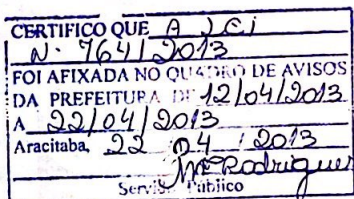 CERTIFICO QUE A LEi
N. 764/2013
FOI AFIXADA NO QUADRO DE AVISOS
DA PREFEITURA DE 12/04/2013
A 22/04/2013
Aracitaba, 22 04 / 2013
MRodrigues
Serviço Público